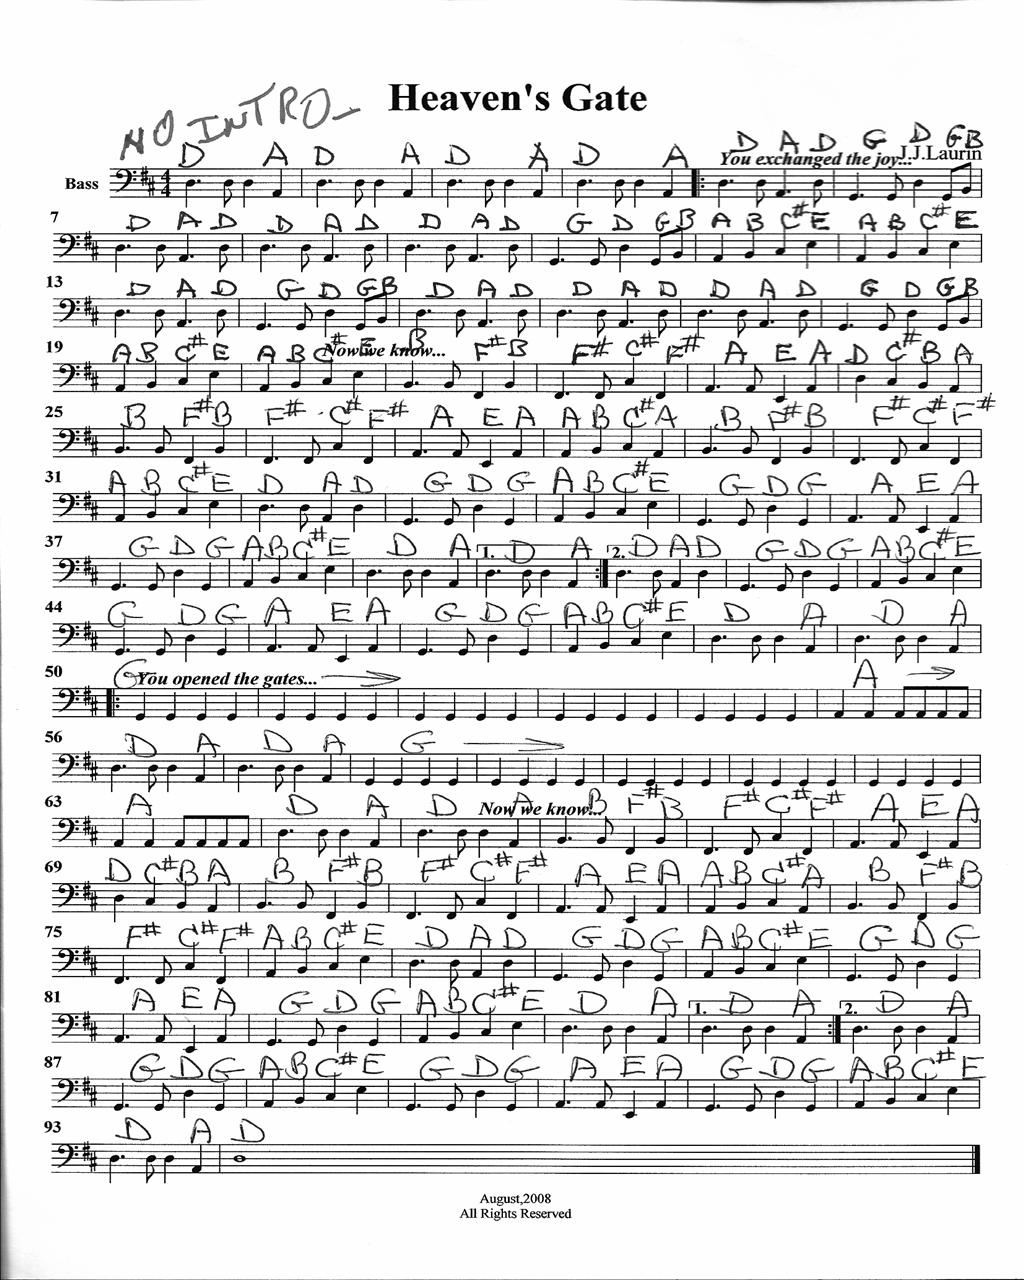 Heaven's Gate
NO INTRO
D A D A D A D A D A D G D GB
You exchanged the joy...
J.J.Laurin
Bass
7
D A D D A D D A D G D GB A B C# E A B C# E
13
D A D G D GB D A D D A D D A D G D GB
19
A B C# E A B C# E B F# B F# C# F# A E A D C# B A
Now we know...
25
B F# B F# C# F# A E A A B C# A B F# B F# C# F#
31
A B C# E D A D G D G A B C# E G D G A E A
37
G D G A B C# E D A 1. D A 2. D A D G D G A B C# E
44
G D G A E A G D G A B C# E D A D A
50
G You opened the gates... A
56
D A D A G
63
A D A D A B F# B F# C# F# A E A
Now we know...
69
D C# B A B F# B F# C# F# A E A A B C# A B F# B
75
F# C# F# A B C# E D A D G D G A B C# E G D G
81
A E A G D G A B C# E D A 1. D A 2. D A
87
G D G A B C# E G D G A E A G D G A B C# E
93
D A D
August,2008
All Rights Reserved